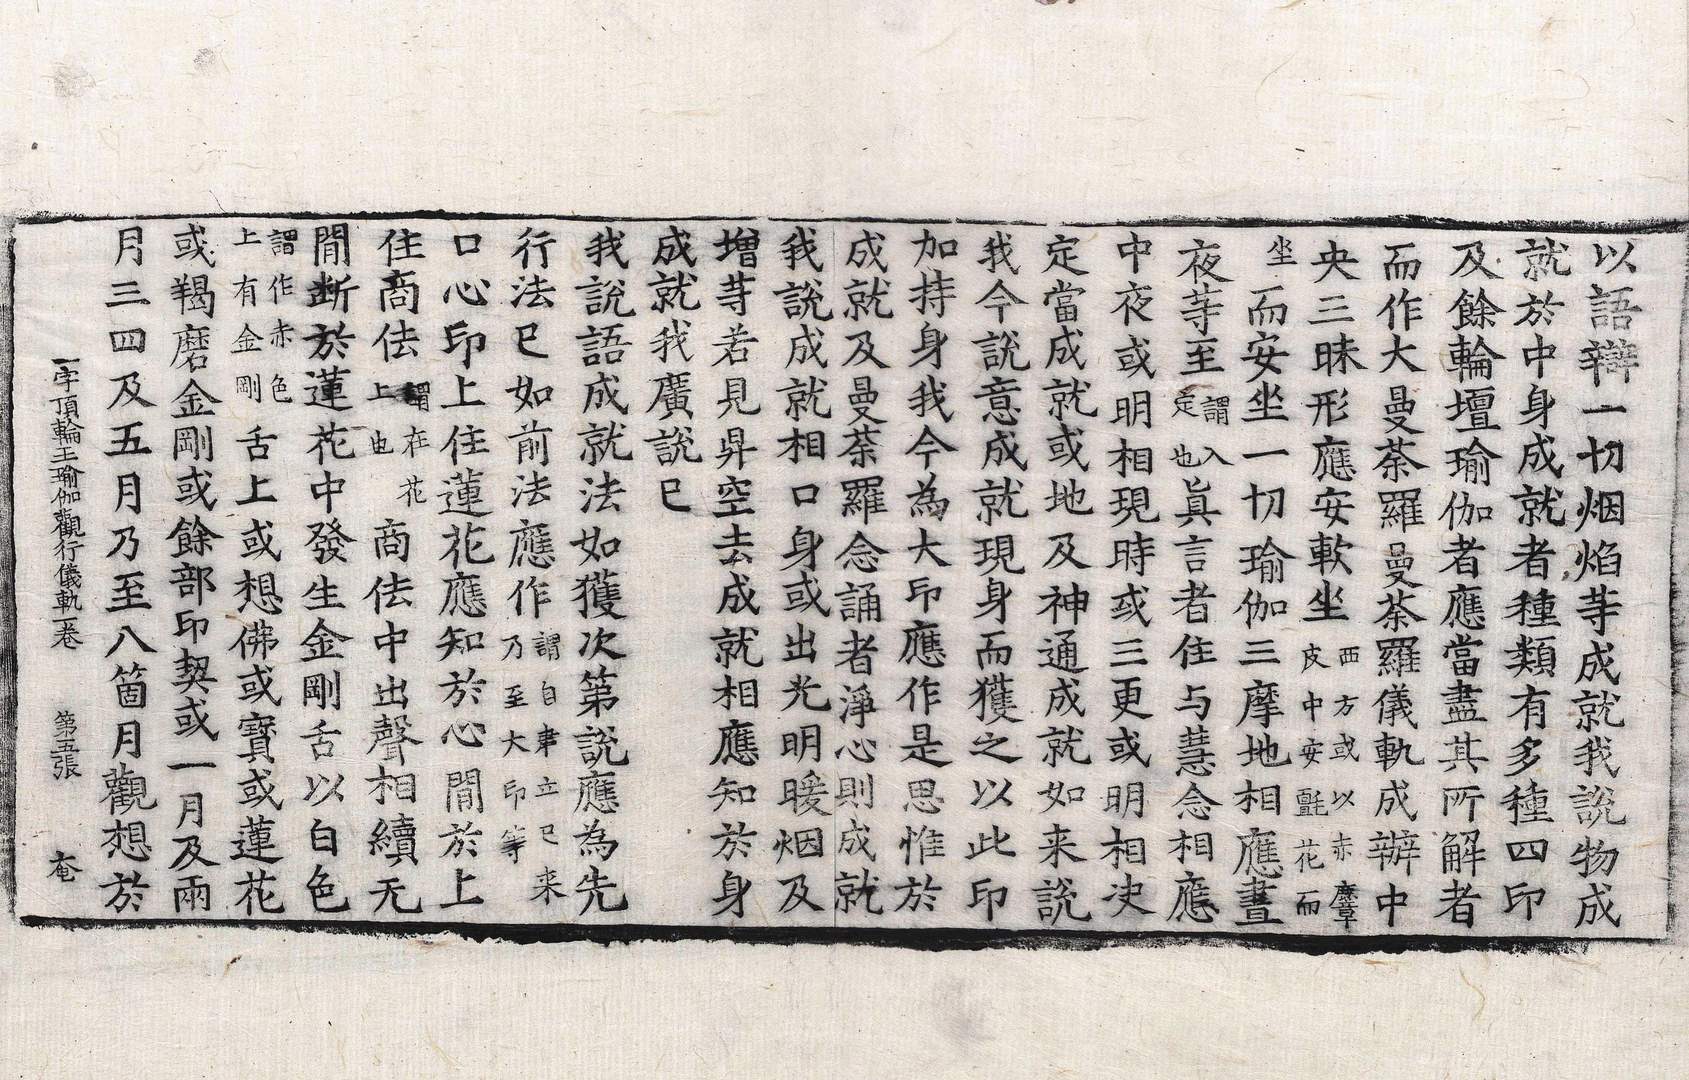 以語辯一切烟焰等成就我說物成
就於中身成就者種類有多種四印
及餘輪壇瑜伽者應當盡其所解者
而作大曼荼羅曼荼羅儀軌成辦中
央三昧形應安軟坐西方或以赤麞皮中安氍花而
坐而安坐一切瑜伽三摩地相應晝
夜等至謂入定也眞言者住与慧念相應
中夜或明相現時或三更或明相决
定當成就或地及神通成就如来說
我今說意成就現身而獲之以此印
加持身我今為大印應作是思惟於
成就及曼荼羅念誦者淨心則成就
我說成就相口身或出光明暖烟及
增等若見昇空去成就相應知於身
成就我廣說已
我說語成就法如獲次第說應為先
行法已如前法應作謂自聿立已来乃至大印等
口心印上住蓮花應知於心間於上
住商佉謂在花上也商佉中出聲相續无
間断於蓮花中發生金剛舌以白色
謂作赤色上有金剛舌上或想佛或寳或蓮花
或羯磨金剛或餘部印契或一月及兩
月三四及五月乃至八箇月觀想於
一字頂輪王瑜伽觀行儀軌一卷 第五張 奄